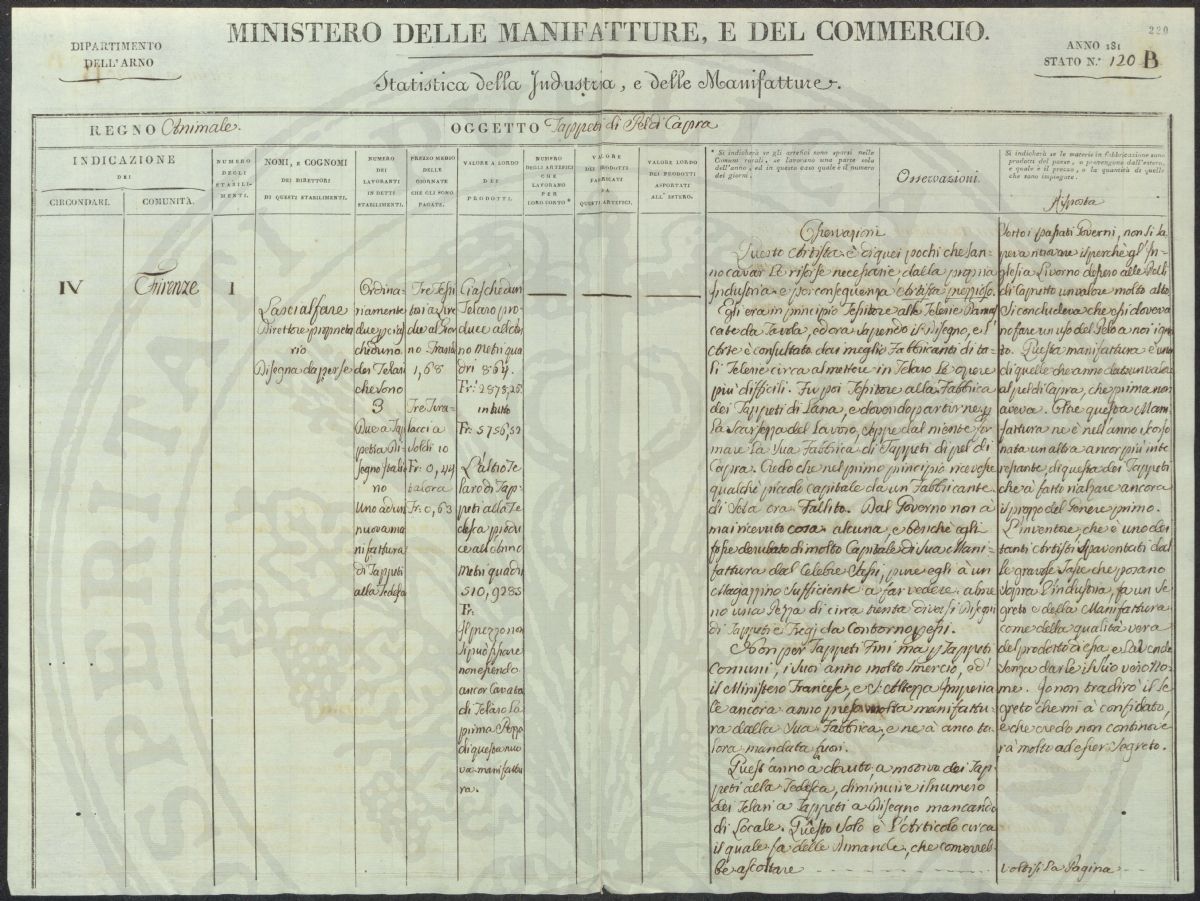 220
MINISTERO DELLE MANIFATTURE, E DEL COMMERCIO.
DIPARTIMENTO
DELL'ARNO
ANNO 181
STATO N.° 120 B
Statistica della Industria, e delle Manifatture.
REGNO Animale.
OGGETTO Tappeti di Pel di Capra
INDICAZIONE
DEI
CIRCONDARI.
COMUNITÀ.
NUMERO
DEGLI
STABILI-
MENTI.
NOMI, E COGNOMI
DEI DIRETTORI
DI QUESTI STABILIMENTI.
NUMERO
DEI
LAVORANTI
IN DETTI
STABILIMENTI.
PREZZO MEDIO
DELLE
GIORNATE
CHE GLI SONO
PAGATE.
VALORE A LORDO
DEI
PRODOTTI.
NUMERO
DEGLI ARTEFICI
CHE
LAVORANO
PER
LORO CONTO*
VALORE
DEI PRODOTTI
FABBRICATI
DA
QUESTI ARTEFICI.
VALORE LORDO
DEI PRODOTTI
ASPORTATI
ALL'ESTERO.
* Si indicherà se gli artefici sono sparsi nelle
Comuni rurali, se lavorano una parte sola
dell'anno, ed in questo caso quale è il numero
dei giorni.
Osservazioni.
Si indicherà se le materie in fabbricazione sono
prodotti del paese, o provengono dall'estero,
e quale è il prezzo, o la quantità di quelle
che sono impiegate.
Risposta
IV
Firenze
1
Lascialfare
Direttore proprieta
rio
Disegna da per se
Ordina-
riamente
due per cia
cheduno
dei Telari
che sono
3
Due a Tap
peti a Di-
segno Itali
no
Uno ad un
nuova ma
nifattura
di Tappeti
alla Tedesa
Tre Tessi
tori a Lire
due al Gior
no Franchi
1,68
Tre Tira-
lacci a
soldi 10
Fr: 0,44
talora
Fr: 0,63
Ciaschedun
Telaro pro-
duce ad an
no Metri qua
dri 864
Fr: 2878,26
in tutto
Fr: 5756,52
L'altro Te
laro di Tap-
peti alla Te
desca produ
ce all'Anno
Metri quadri
510,9285
Fr:
Il prezzo non
si può fissare
non essendo
ancor cavata
di Telaro la
prima Pezza
di questa nuo
va manifattu
ra.
Osservazioni
Questo Artista è di quei pochi che san-
no cavar le risorse necessarie dalla propria
Industria e per conseguenza Artista prezioso.
Egli era in principio Tessitore alle Telerie Damas
cate da Tavola, ed ora sapendo il Disegno, e l'
Arte è consultato dai meglio Fabbricanti di ta-
li Telerie circa al mettere in Telaro le opere
più difficili. Fu poi Tessitore alla Fabbrica
dei Tappeti di Lana, e dovendo partirne p
la Scarsezza del lavoro, seppe dal niente for
mare la Sua Fabbrica di Tappeti di pel di
Capra. Credo che nel primo principio ricevesse
qualche piccolo capitale da un Fabbricante
di Seta ora Fallito. Dal Governo non à
mai ricevuto cosa alcuna, e benchè egli
fosse derubato di molto Capitale di Sua Mani-
fattura dal Celebre pure egli à un
Magazzino Sufficiente a far vedere alme
no una Pezza di circa trenta diversi Disegni
di Tappeti e Fregi da Contorno pessi.
Non per Tappeti Fini ma p Tappeti
Comuni, i suoi anno molto Smercio, ed
il Ministero Francese, e S. Altezza Imperia
le ancora anno presa molta manifattu-
ra dalla Sua Fabbrica, e ne à anco ta-
lora mandata fuori.
Quest'anno à dovuto, a motivo dei Tap-
peti alla Tedesca, diminuire il numero
dei Telari a Tappeti a Disegno mancando
di Locale. Questo solo è l'Articolo circa
il quale fa delle dimande, che converreb-
be ascoltare
Sotto i passati Governi, non si sa
peva trovare il perchè gl'In-
glesi a Livorno dessero alle Pelli
di Capretto un valore molto alto
Si concludeva che essi dovevano
no fare un uso del Pelo a noi igno
to. Questa manifattura è una
di quelle che anno dato un valore
al pel di Capra, che prima non
aveva. Oltre questa Mani
fattura ne è nell'anno scorso
nata un'altra ancor più inte
ressante, di questa dei Tappeti
che à fatto rialzare ancora
il prezzo del Genere primo.
L'inventore, che è uno dei
tanti Artisti spaventati dal
le gravose Tasse che posano
sopra l'industria, fa un se
greto e della Manifattura
come della qualità vera
del prodotto di essa, e lo vende
senza darle il suo vero No-
me. Io non tradirò il se
greto che mi à confidato,
e che credo non continove
rà molto ad esser Segreto.
voltisi la Pagina